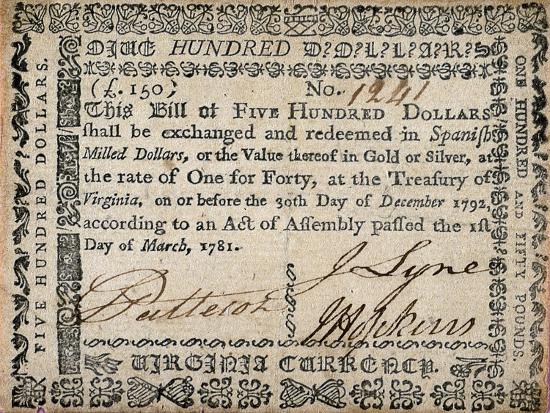 FIVE HUNDRED DOLLARS
(£. 150) No. 1241
This Bill of FIVE HUNDRED DOLLARS
ſhall be exchanged and redeemed in Spaniſh
Milled Dollars, or the Value thereof in Gold or Silver, at
the rate of One for Forty, at the Treaſury of
Virginia, on or before the 30th Day of December 1792,
according to an Act of Aſſembly paſſed the 1ſt
Day of March, 1781.
J Lyne
J Hopkins
VIRGINIA CURRENCY.
FIVE HUNDRED DOLLARS.
ONE HUNDRED AND FIFTY POUNDS.